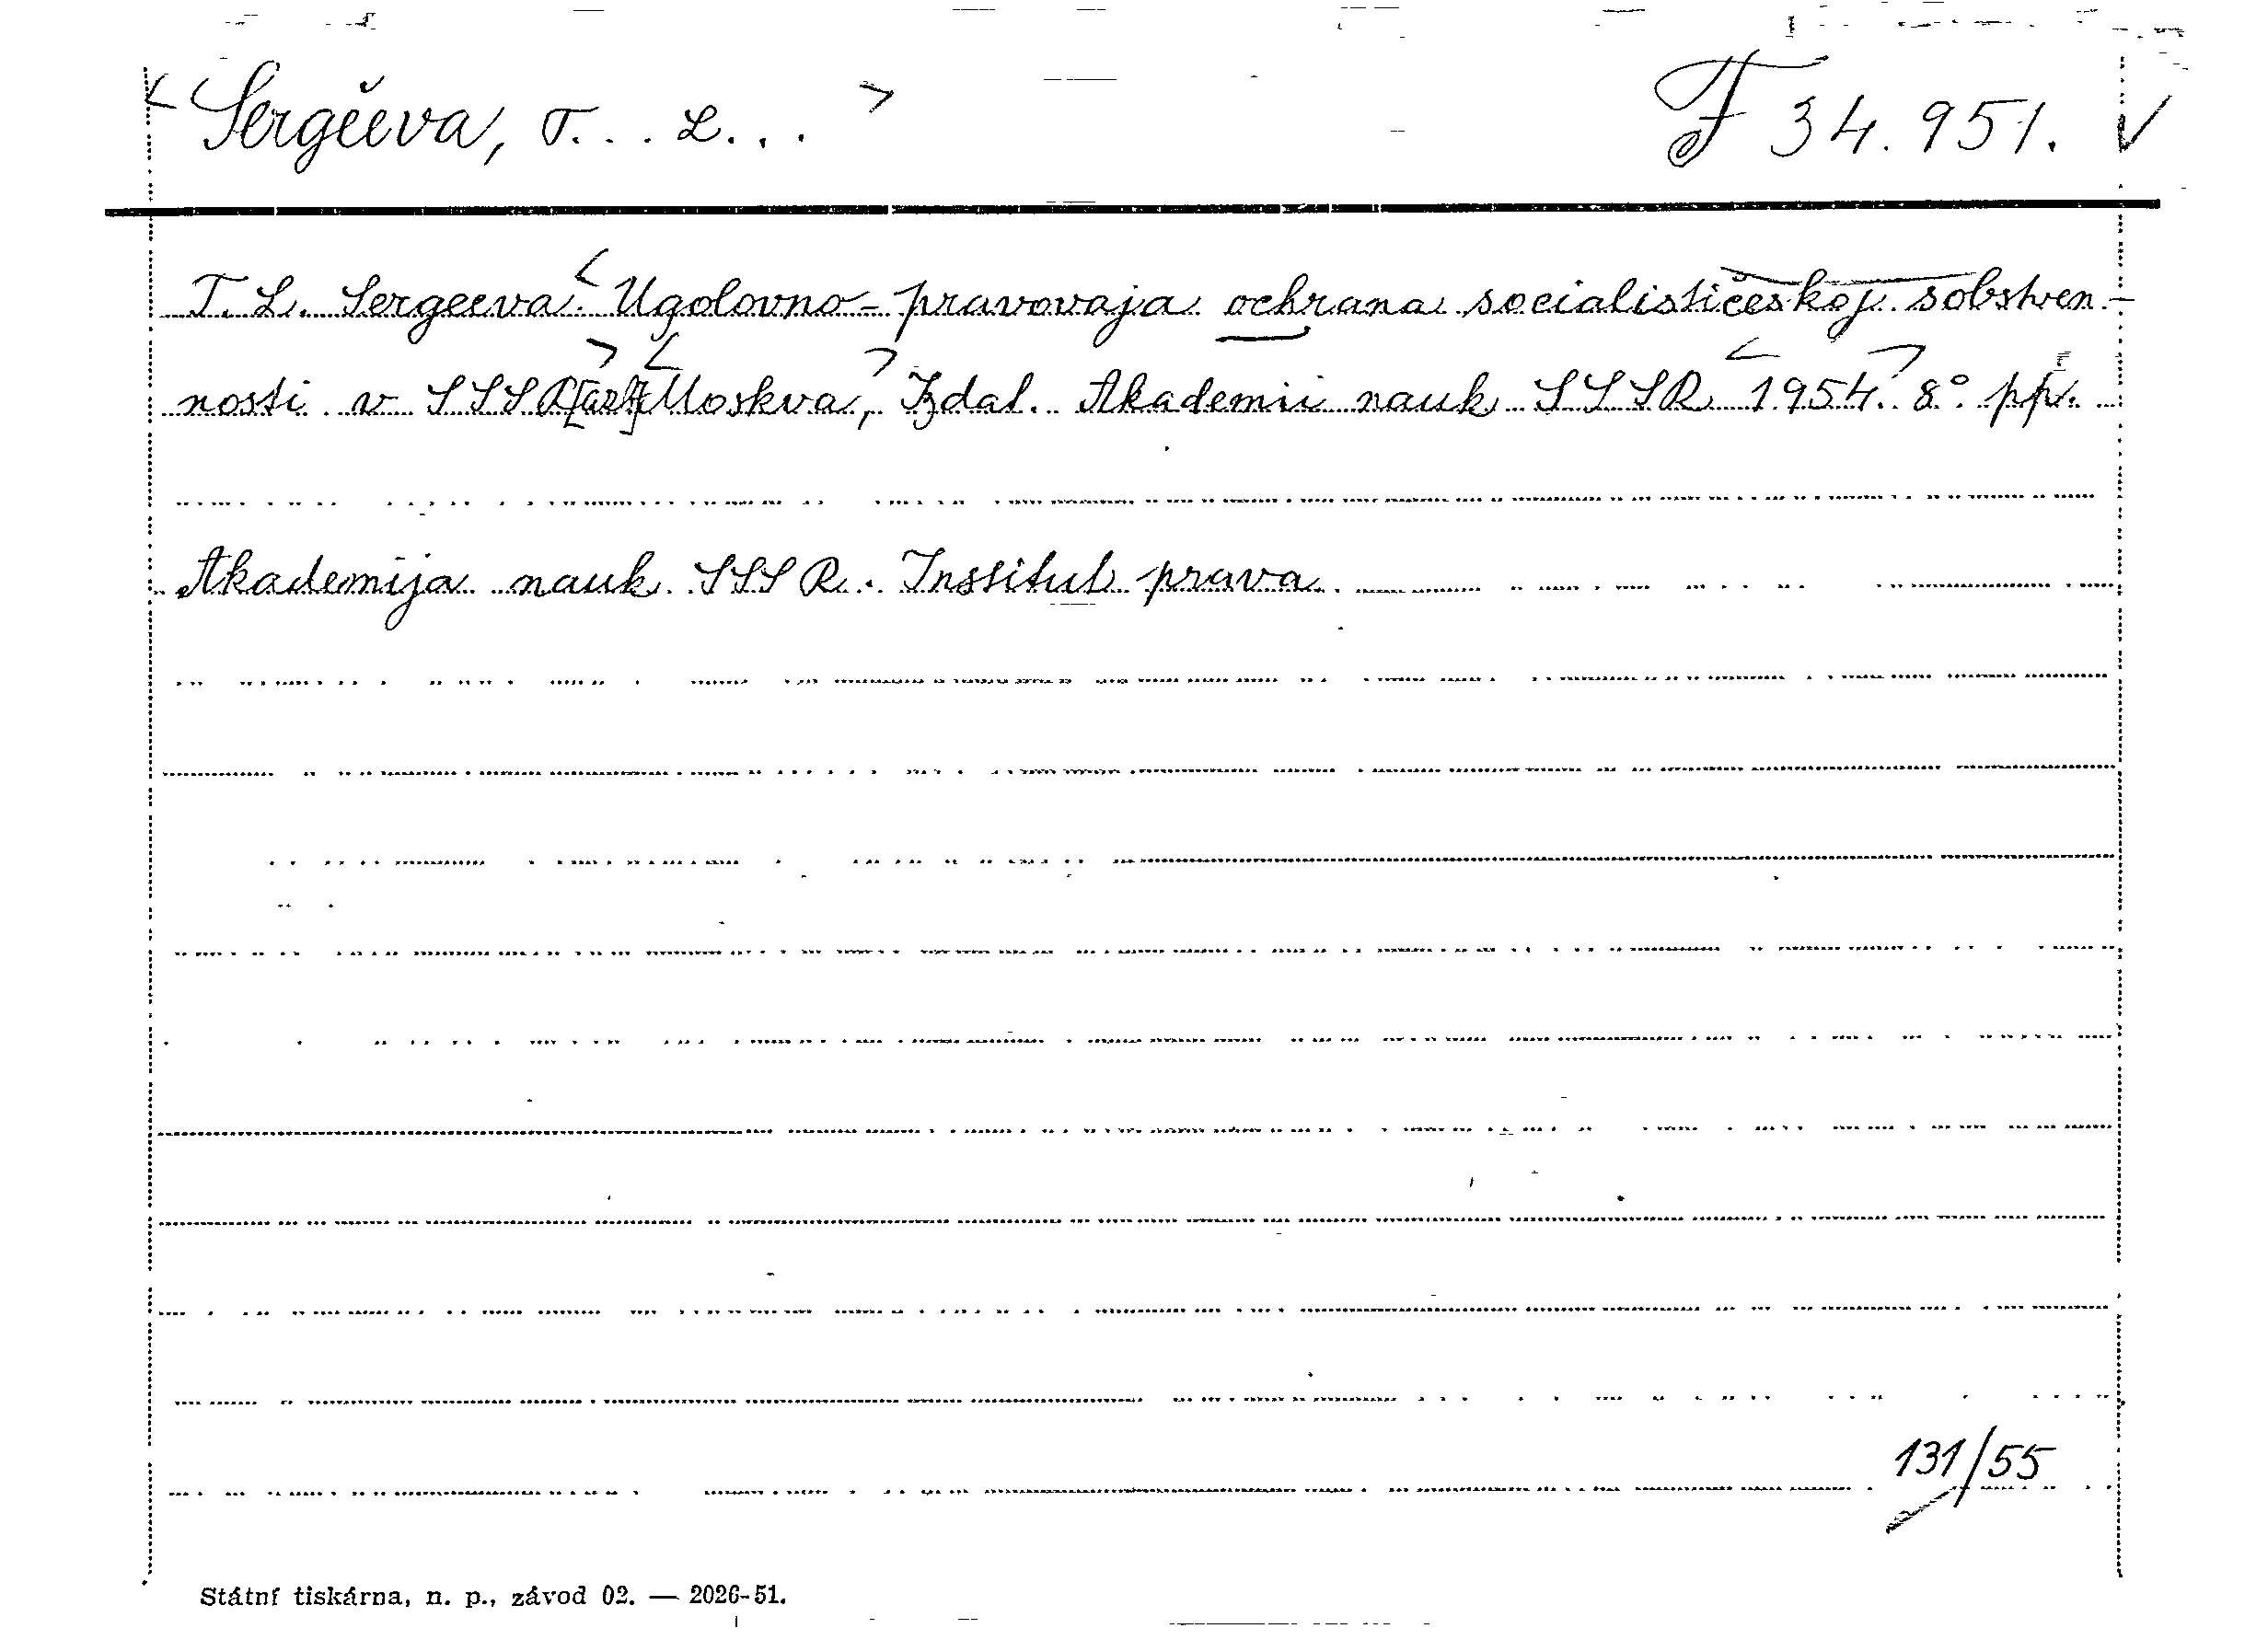 Sergěeva, T... L... F 34.951.
T. L. Sergeeva. Ugolovno-pravovaja ochrana socialističeskoj sobstven-
nosti v SSSR Moskva, Izdat. Akademii nauk SSSR 1954. 8°. pp.
Akademija nauk SSSR. Institut prava.
131/55
Státní tiskárna, n. p., závod 02. — 2026-51.